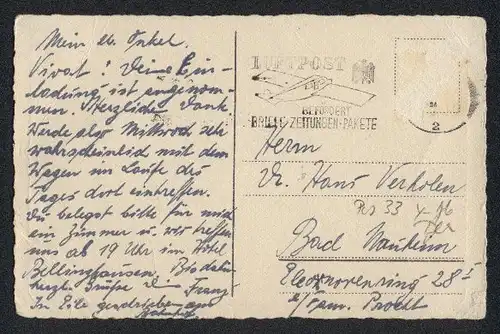 Mein lb. Onkel.
Vivat! Deine Ein-
ladung ist angenom-
men. Herzlichen Dank
Werde also Mittwoch sehr
wahrscheinlich mit dem
Wagen im Laufe des
Tages dort eintreffen.
Du belegst bitte für mich
ein Zimmer u. wir treffen
uns ab 19 Uhr im Hotel
Bellinghausen. Bis dahin
herzl. Grüße Franz
In Eile geschrieben am
Bahnhof
LUFTPOST
BEFÖRDERT
BRIEFE·ZEITUNGEN·PAKETE
2
Herrn
Dr. Hans Verholen
33
Bad Nauheim
Eleonorenring 28
b/Fam.